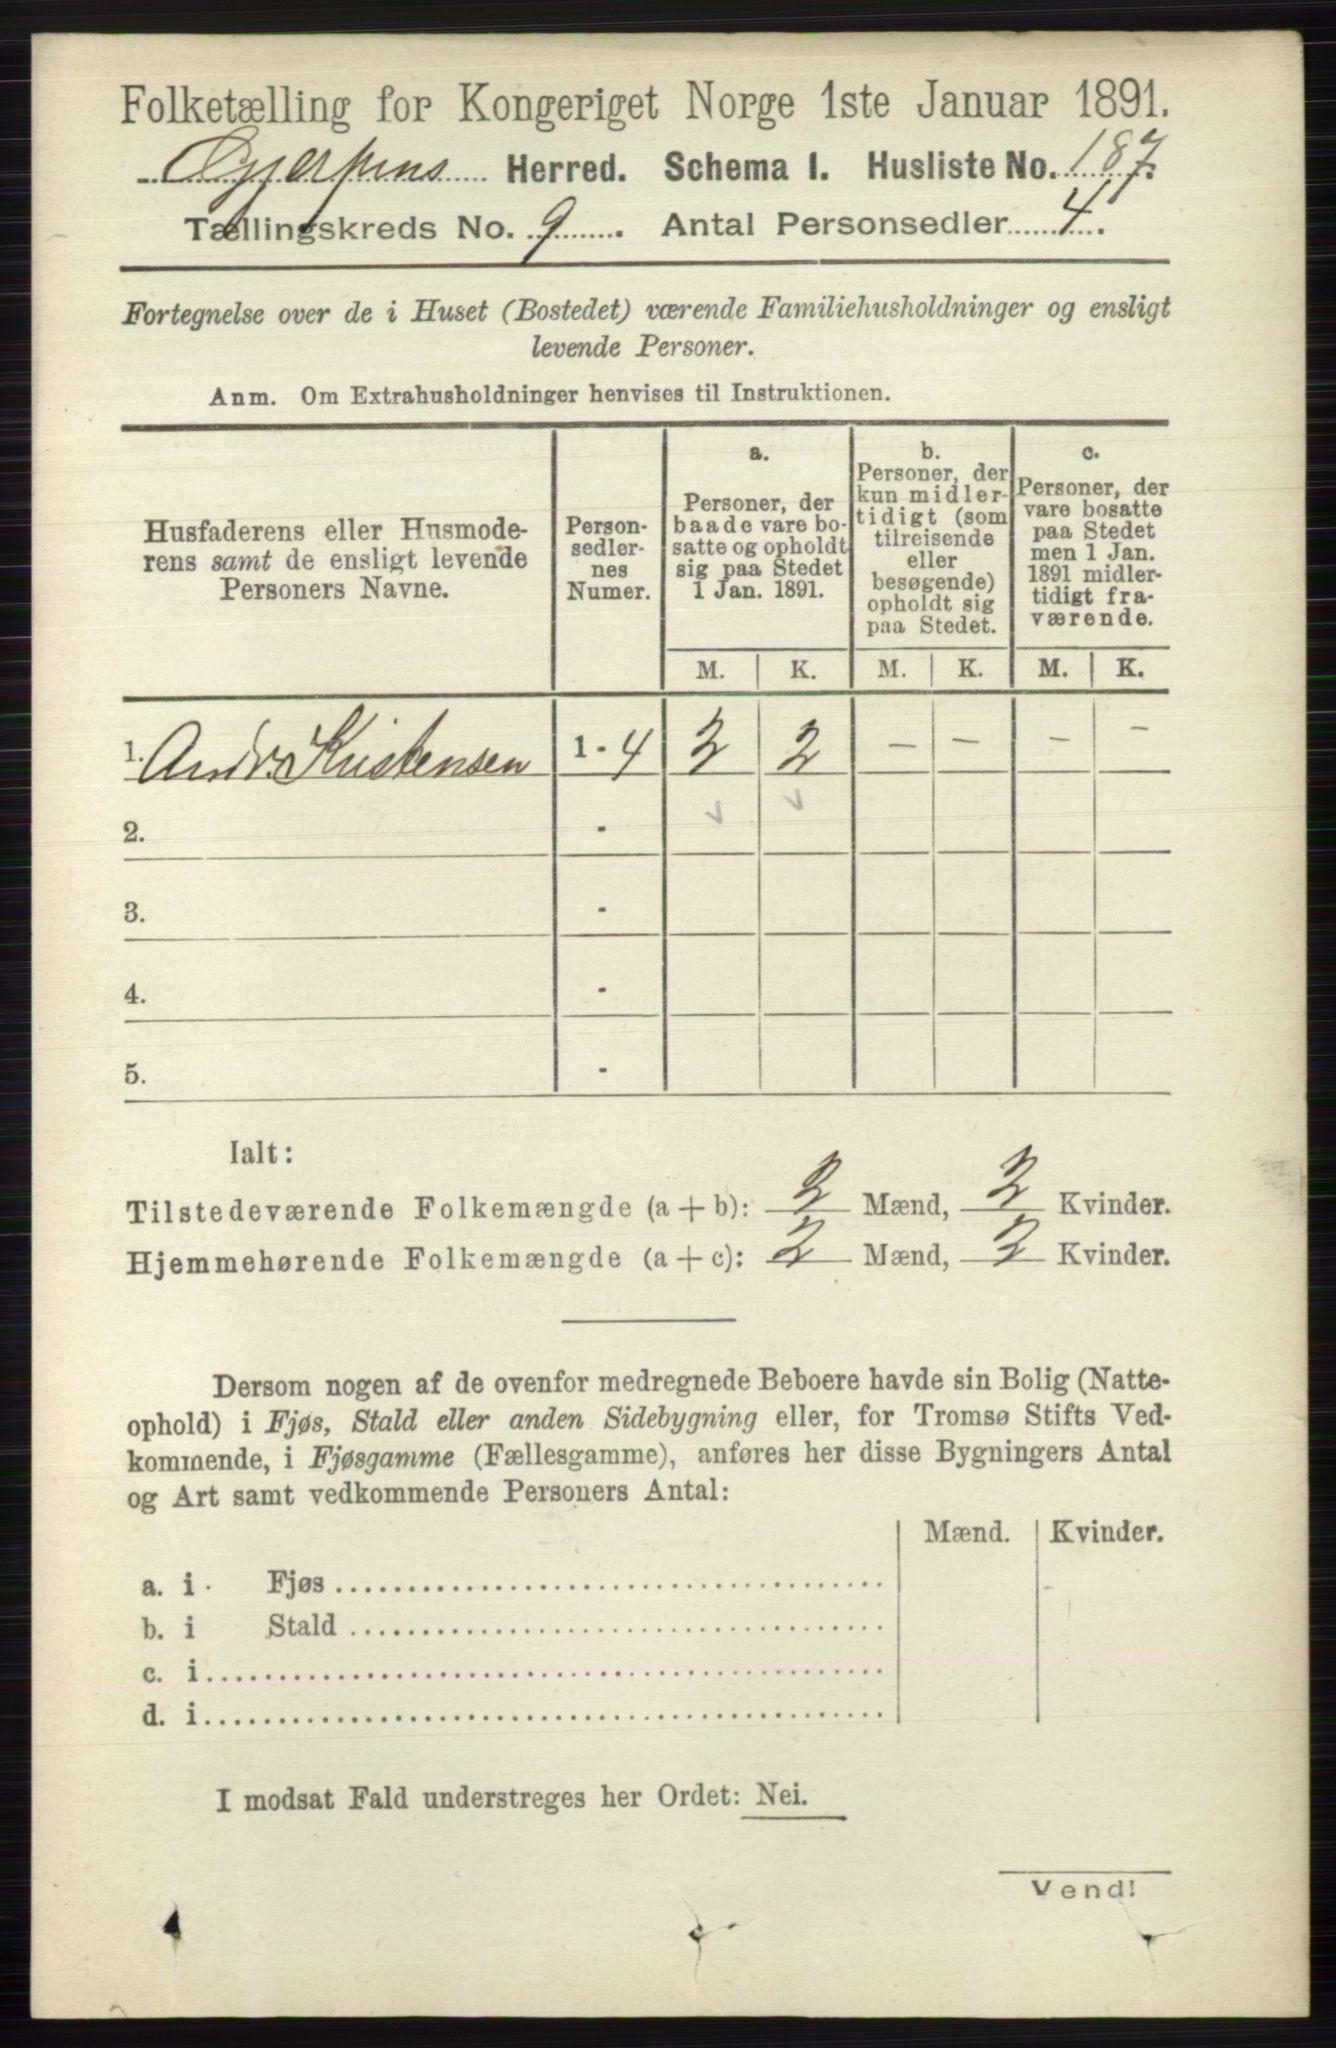 Folketælling for Kongeriget Norge 1ste Januar 1891.
Gjerpens Herred. Schema I. Husliste No. 187.
Tællingskreds No. 9. Antal Personsedler 4.
Fortegnelse over de i Huset (Bostedet) værende Familiehusholdninger og ensligt
levende Personer.
Anm. Om Extrahusholdninger henvises til Instruktionen.
Husfaderens eller Husmode-
rens samt de ensligt levende
Personers Navne.
Person-
sedler-
nes
Numer.
a.
Personer, der
baade vare bo-
satte og opholdt
sig paa Stedet
1 Jan. 1891.
b.
Personer, der
kun midler-
tidigt (som
tilreisende
eller
besøgende)
opholdt sig
paa Stedet.
c.
Personer, der
vare bosatte
paa Stedet
men 1 Jan.
1891 midler-
tidigt fra-
værende.
M. K. M. K. M. K.
1. Andr. Kristensen 1 - 4 2 2 - - - -
2. -
3. -
4. -
5. -
Ialt:
Tilstedeværende Folkemængde (a + b): 2 Mænd, 2 Kvinder.
Hjemmehørende Folkemængde (a + c): 2 Mænd, 2 Kvinder.
Dersom nogen af de ovenfor medregnede Beboere havde sin Bolig (Natte-
ophold) i Fjøs, Stald eller anden Sidebygning eller, for Tromsø Stifts Ved-
kommende, i Fjøsgamme (Fællesgamme), anføres her disse Bygningers Antal
og Art samt vedkommende Personers Antal:
Mænd. Kvinder.
a. i Fjøs
b. i Stald
c. i
d. i
I modsat Fald understreges her Ordet: Nei.
Vend!